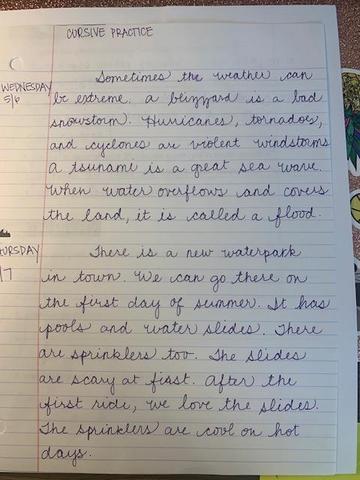 CURSIVE PRACTICE
WEDNESDAY
5/6
Sometimes the weather can
be extreme. A blizzard is a bad
snowstorm. Hurricanes, tornadoes,
and cyclones are violent windstorms
A tsunami is a great sea wave.
When water overflows and covers
the land, it is called a flood.
URSDAY
/7
There is a new waterpark
in town. We can go there on
the first day of summer. It has
pools and water slides. There
are sprinklers too. The slides
are scary at first. After the
first ride, we love the slides.
The sprinklers are cool on hot
days.